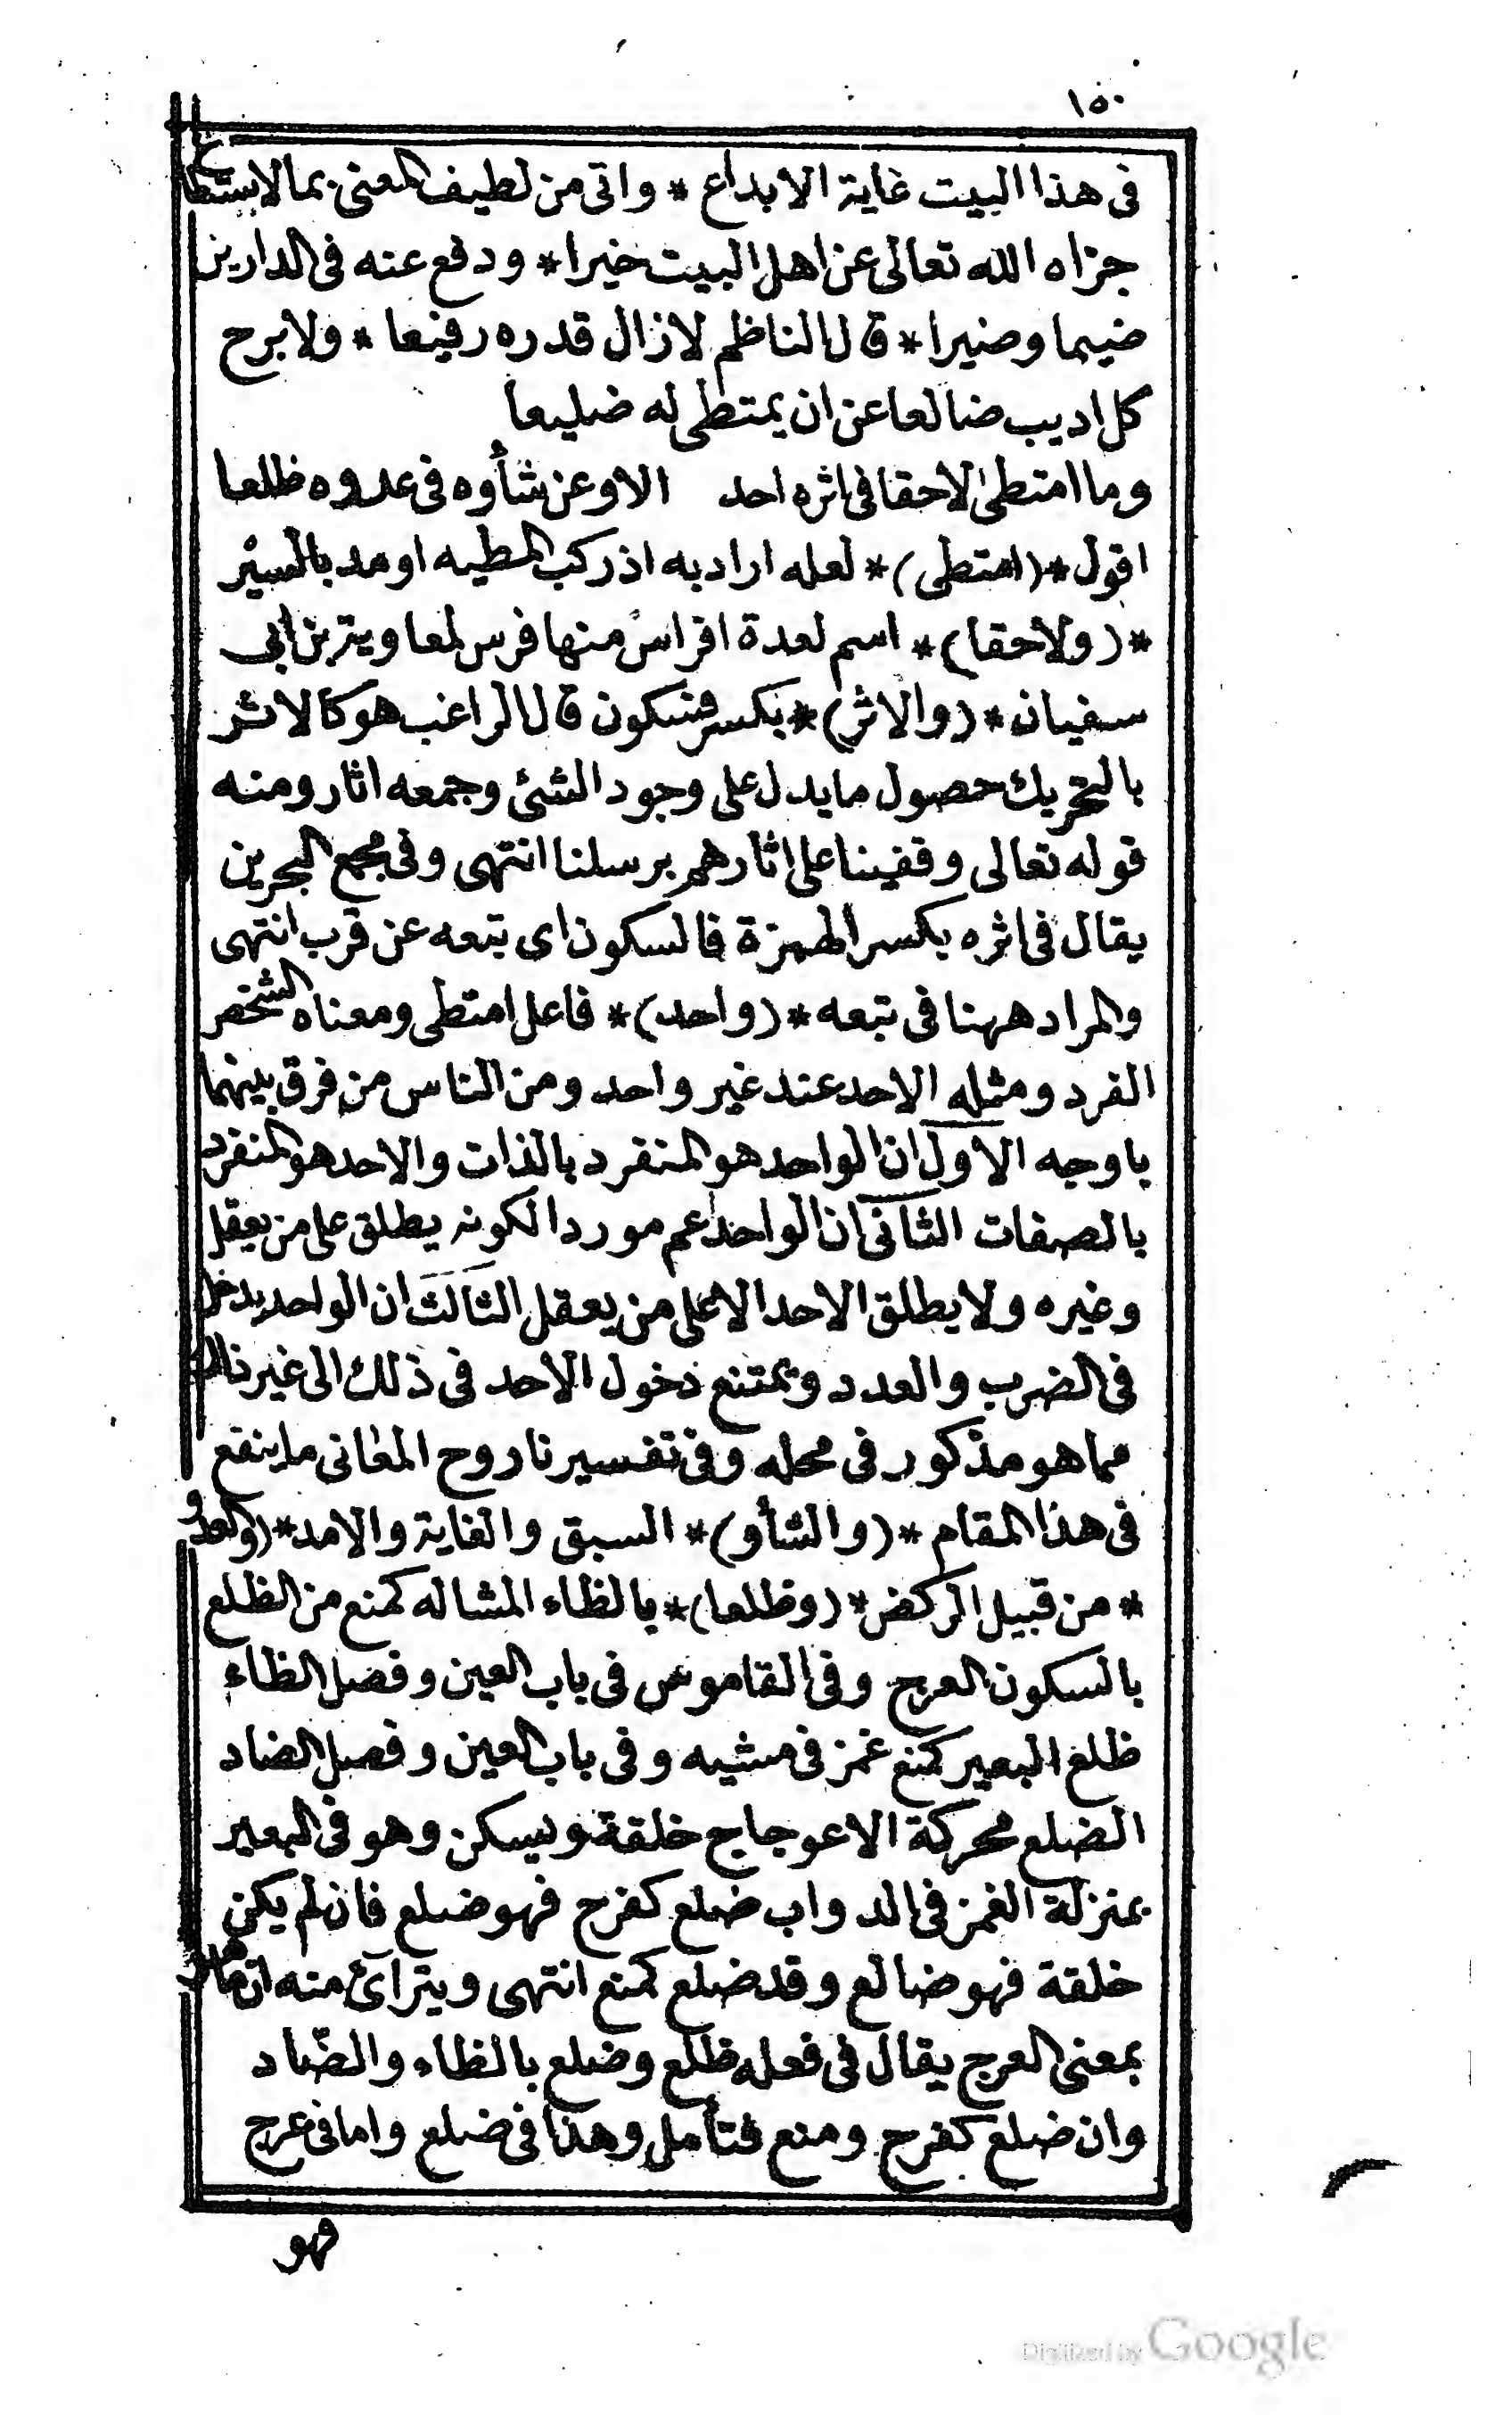 ١٥٠
فى هذا البيت غاية الابداع * واتى من لطيف المعنى بما لا يستطاع
جزاه الله تعالى عن اهل البيت خيرا * ودفع عنه فى الدارين
ضيما وضيرا * قال الناظم لازال قدره رفيعا * ولا برح
كل اديب ضالعا عن ان يمتطى له ضليعا
وما امتطى لاحقا فى اثره احد الا وعن شأوه فى عدوه ظلعا
اقول * (امتطى) * لعله اراد به اذ ركب المطيه او مد بالسير
* (ولاحقا) * اسم لعدة افراس منها فرس لمعاوية بن ابى
سفيان * (والاثر) * بكسر فسكون قال الراغب هو كالاثر
بالتحريك حصول ما يدل على وجود الشئ وجمعه اثار ومنه
قوله تعالى وقفينا على اثارهم برسلنا انتهى وفى مجمع البحرين
يقال فى اثره بكسر الهمزة فالسكون اى تبعه عن قرب انتهى
والمراد ههنا فى تبعه * (واحد) * فاعل امتطى ومعناه الشخص
الفرد ومثله الاحد عند غير واحد ومن الناس من فرق بينهما
باوجه الاول ان الواحد هو المنفرد بالذات والاحد هو المنفرد
بالصفات الثانى ان الواحد اعم موردا لكونه يطلق على من يعقل
وغيره ولا يطلق الاحد الا على من يعقل الثالث ان الواحد يدخل
فى الضرب والعدد ويمتنع دخول الاحد فى ذلك الى غير ذلك
مما هو مذكور فى محله وفى تفسيرنا روح المعانى ما ينفع
فى هذا المقام * (والشأو) * السبق والغاية والامد * (والعدو)
* من قبيل الركض * (وظلعا) * بالظاء المشاله كمنع من الظلع
بالسكون العرج وفى القاموس فى باب العين وفصل الظاء
ظلع البعير كمنع غمز فى مشيه وفى باب العين وفصل الضاد
الضلع محركة الاعوجاج خلقة ويسكن وهو فى البعير
بمنزلة الغمز فى الدواب ضلع كفرح فهو ضلع فان لم يكن
خلقة فهو ضالع وقد ضلع كمنع انتهى ويترآئ منه ان ما
بمعنى العرج يقال فى فعله ظلع وضلع بالظاء والضاد
وان ضلع كفرح ومنع فتأمل وهذا فى ضلع واما فى عرج
فهو
Digitized by Google